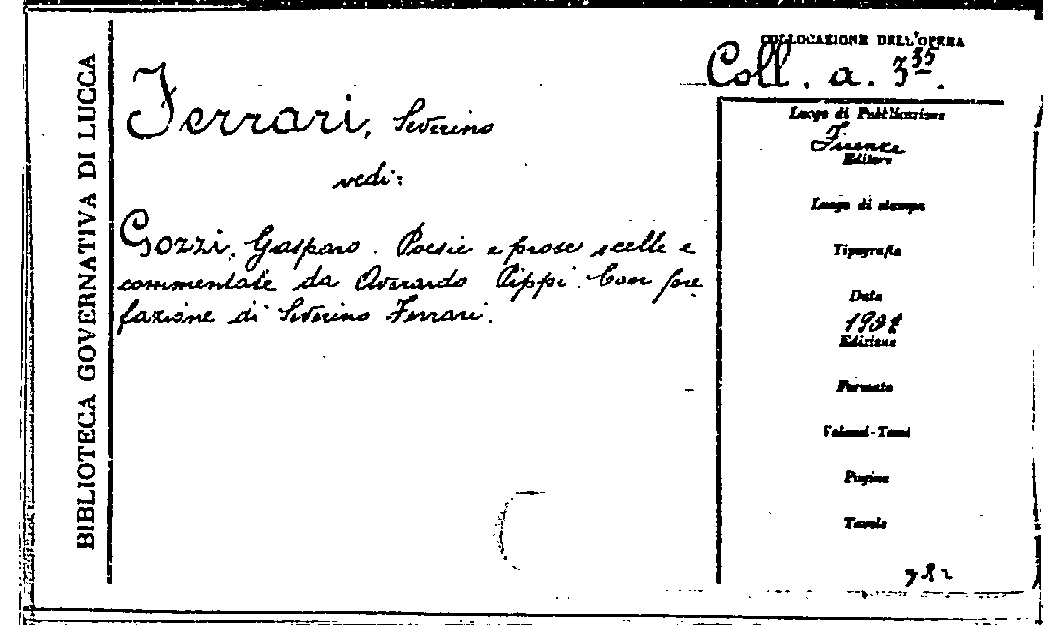 BIBLIOTECA GOVERNATIVA DI LUCCA
COLLOCAZIONE DELL'OPERA
Coll. a. 3 35.
Ferrari, Severino
vedi:
Gozzi, Gasparo. Poesie e prose scelte e
commentate da Averardo Pippi. Con pre
fazione di Severino Ferrari.
Luogo di Pubblicazione
Firenze
Editore
Luogo di stampa
Tipografia
Data
Edizione
Formato
Volumi-Tomi
Pagine
Tavole